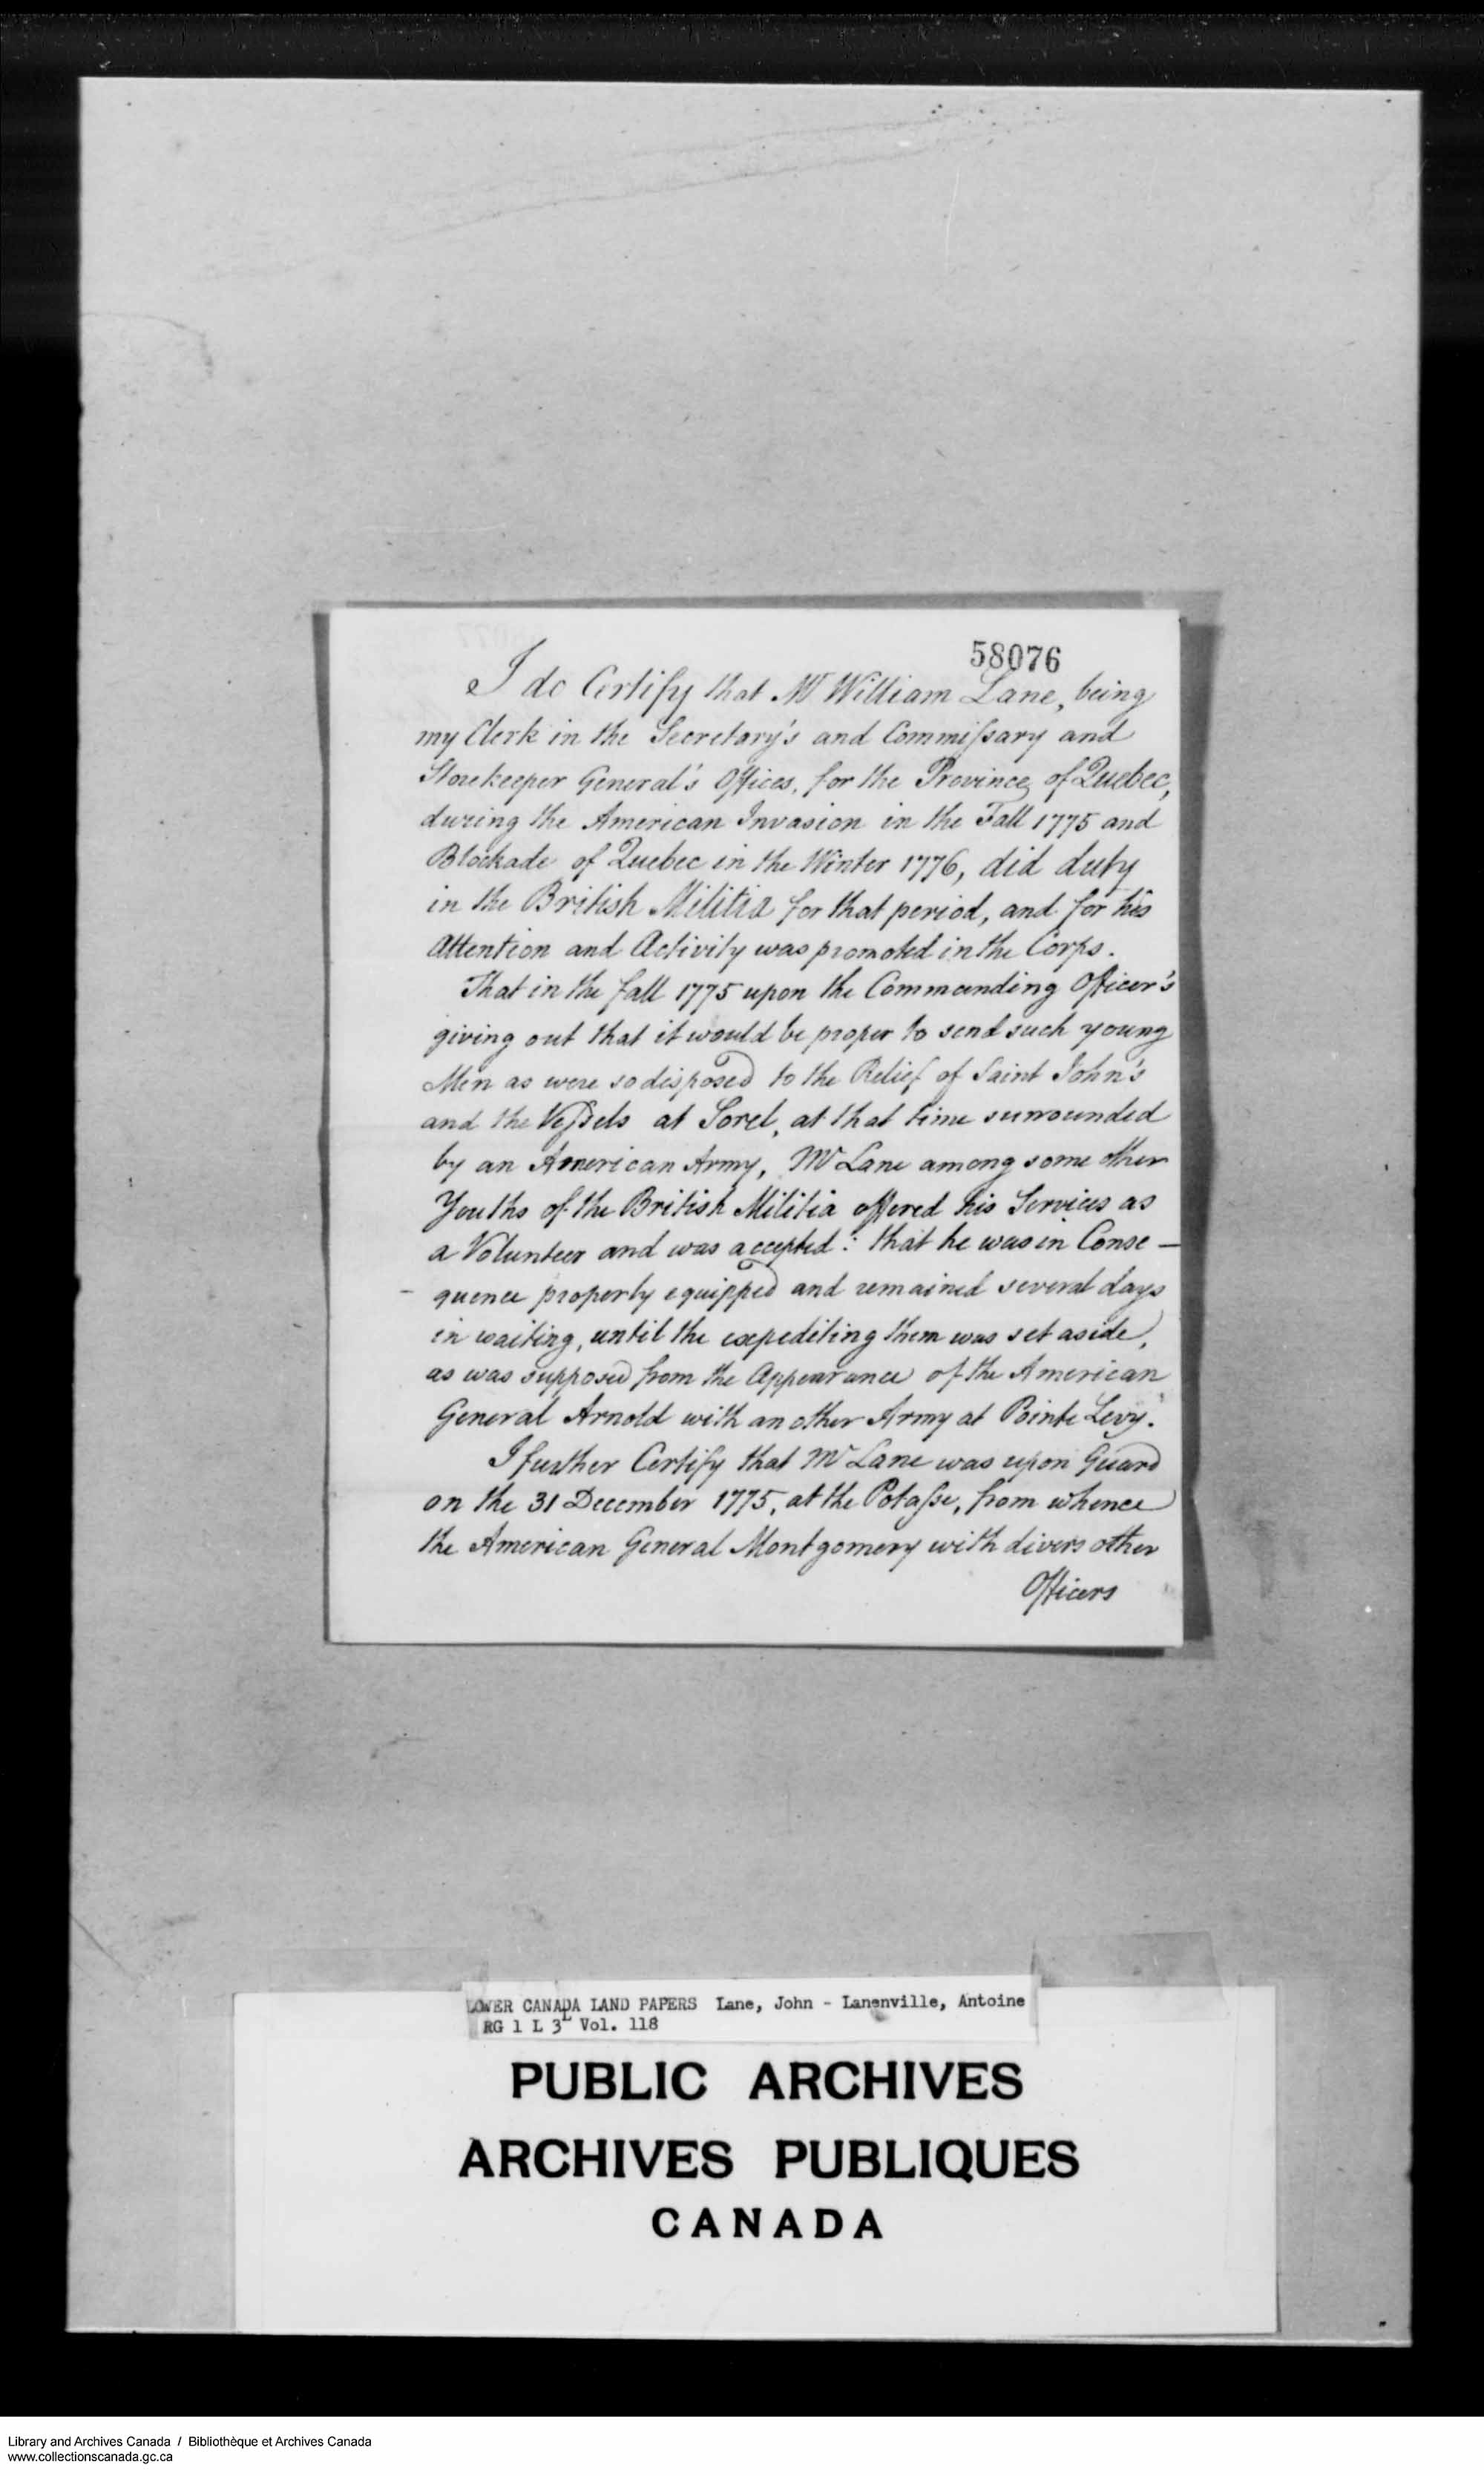 58076
I do Certify that Mr William Lane, being
my Clerk in the Secretary's and Commiſsary and
Storekeeper General's Offices, for the Province of Quebec,
during the American Invasion in the Fall 1775 and
Blockade of Quebec in the Winter 1776, did duty
in the British Militia for that period, and for his
Attention and Activity was promoted in the Corps.
That in the fall 1775 upon the Commanding Officer's
giving out that it would be proper to send such young
Men as were so disposed to the Relief of Saint John's
and the Veſsels at Sorel, at that time surrounded
by an American Army, Mr Lane among some other
Youths of the British Militia offered his Services as
a Volunteer and was accepted: that he was in Conse-
-quence properly equipped and remained several days
in waiting, until the expediting them was set aside,
as was supposed from the Appearance of the American
General Arnold with an other Army at Pointe Levy.
I further Certify that Mr Lane was upon Guard
on the 31 December 1775, at the Potaſse, from whence
the American General Montgomery with divers other
Officers
LOWER CANADA LAND PAPERS Lane, John - Lanenville, Antoine
RG 1 L 3L Vol. 118
PUBLIC ARCHIVES
ARCHIVES PUBLIQUES
CANADA
Library and Archives Canada / Bibliothèque et Archives Canada
www.collectionscanada.gc.ca